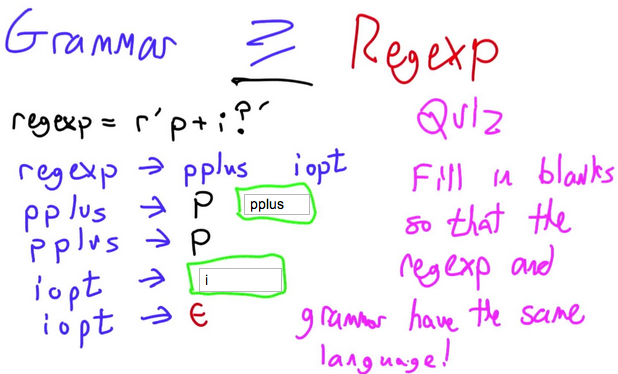 Grammar ≥ Regexp
regexp = r'p+i?'
Quiz
regexp → pplus iopt
pplus → p pplus
pplus → p
iopt → i
iopt → ε
Fill in blanks
so that the
regexp and
grammar have the same
language!